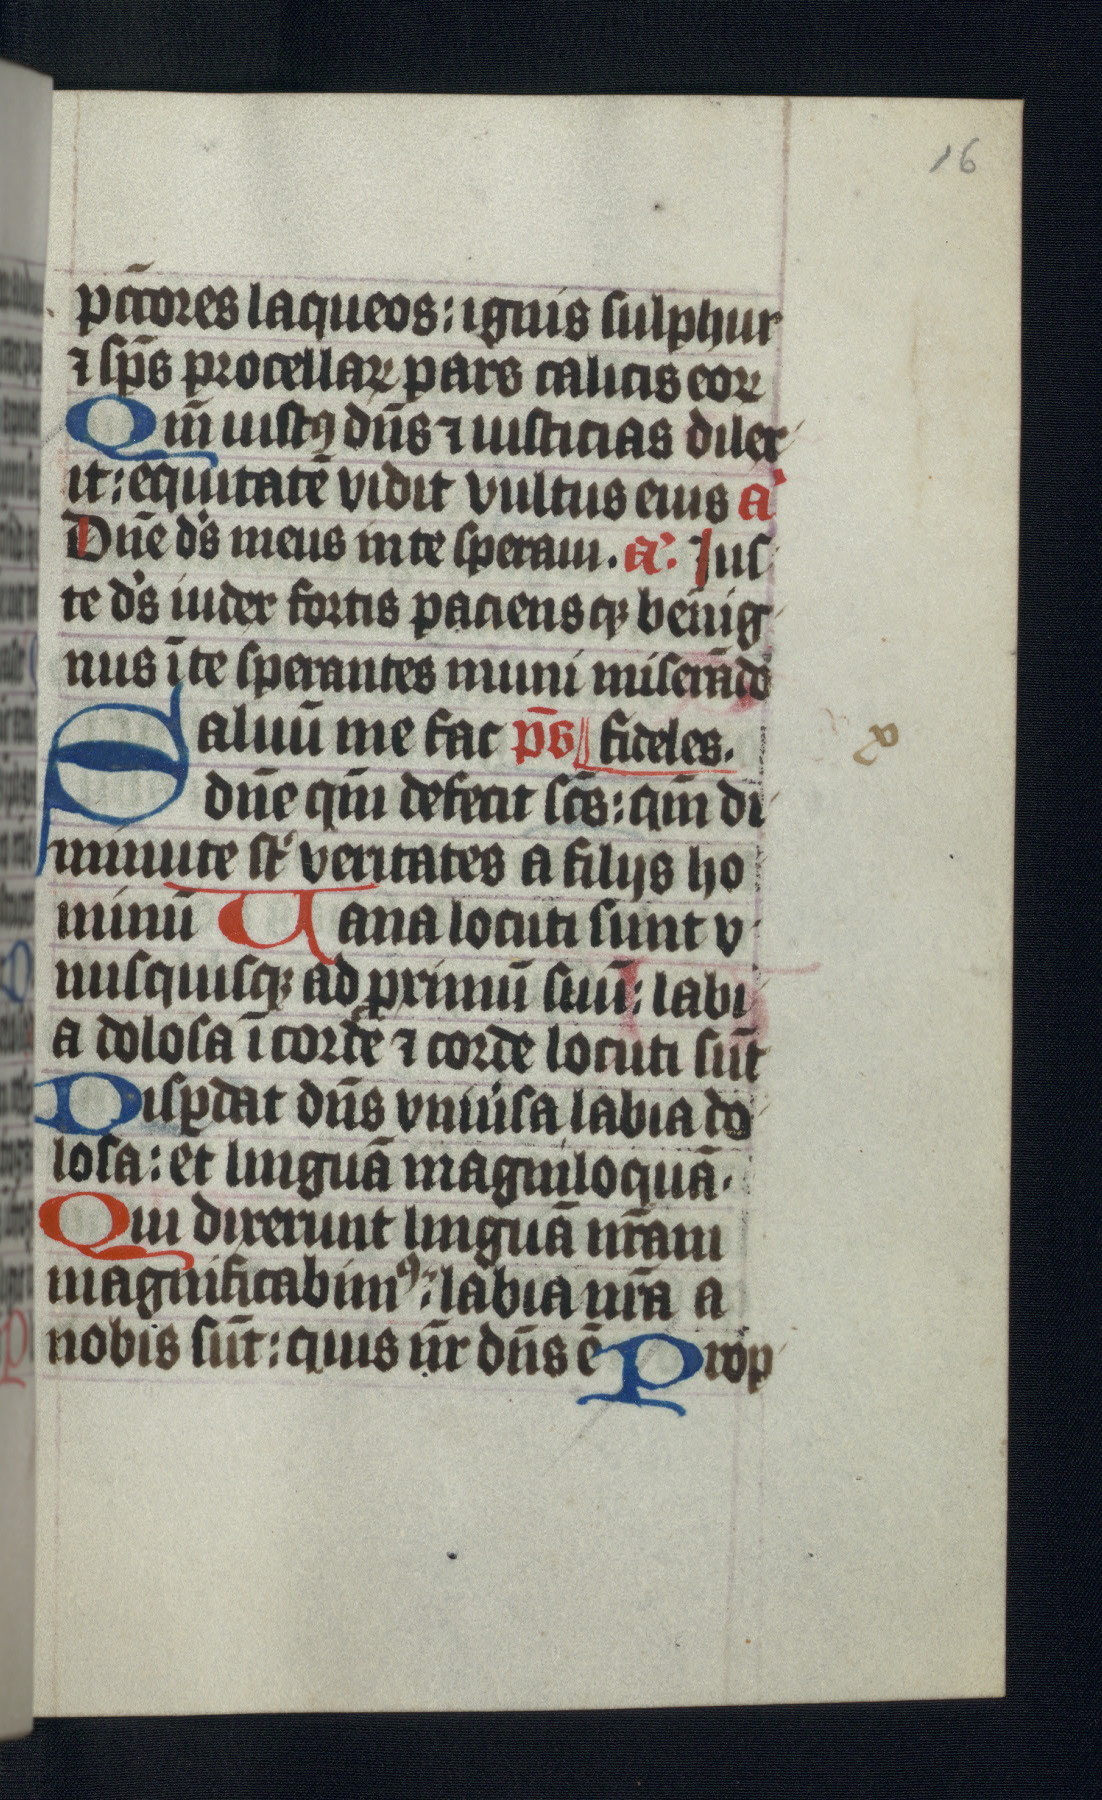 16
pcc̄ores laqueos: ignis sulphur
⁊ sp̄s procellaꝝ pars calicis eoꝝ
Qm̄ iustꝯ dn̄s ⁊ iusticias dilex
it: equitatē vidit vultus eius a
Dn̄e d's meus in te speraui. a. Jus
te d's iudex fortis paciensqꝫ benig
nus ī te sperantes muni miserādo
Saluū me fac ps̄ fideles.
dn̄e qm̄ defecit sc̄s: qm̄ di
minute st' veritates a filijs ho
minū Uana locuti sunt v
nusquisqꝫ ad primū suū: labi
a dolosa ī corde ⁊ corde locuti sūt
Disꝑdat dn̄s vniu'sa labia do
losa: et linguā magniloquā.
Qui dixerunt linguā nr̄am
magnificabimꝯ: labia nr̄a a
nobis sūt: quis n̄r dn̄s ē Prop